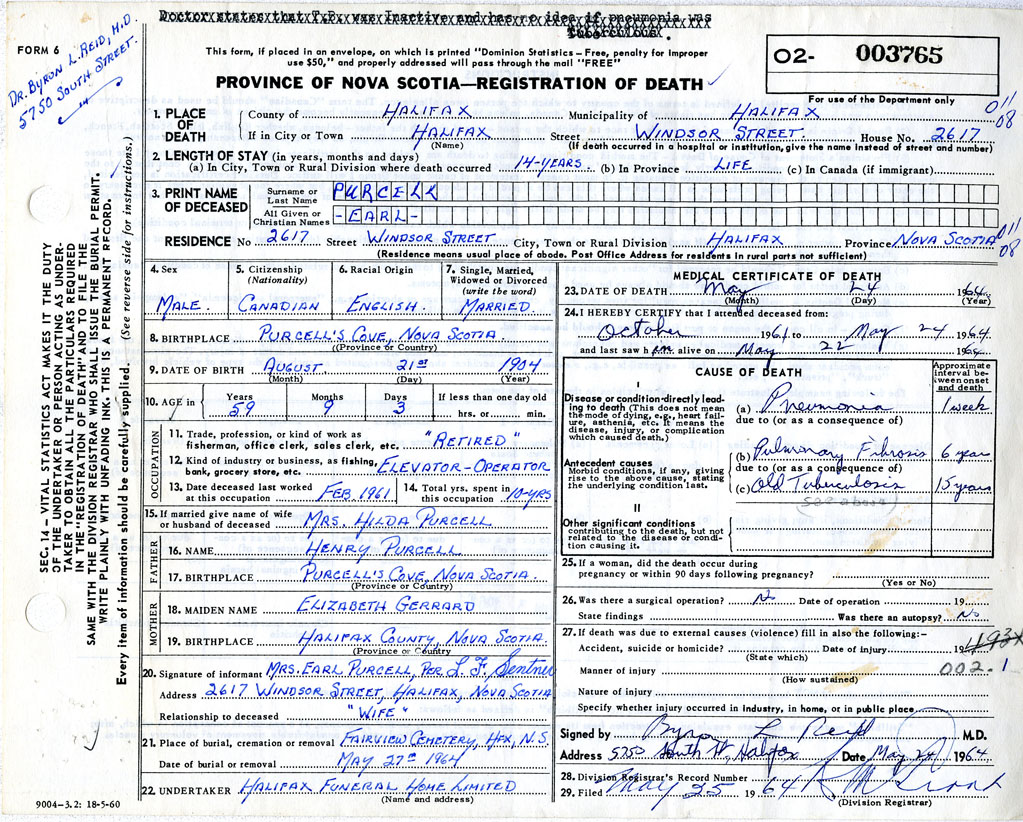 Doctor states that T.B. was Inactive and has no idea if pneumonia was
tuberculous.
FORM 6
DR. BYRON L. REID, M.D.
5750 SOUTH STREET.
This form, if placed in an envelope, on which is printed "Dominion Statistics – Free, penalty for improper
use $50," and properly addressed will pass through the mail "FREE"
PROVINCE OF NOVA SCOTIA—REGISTRATION OF DEATH
02- 003765
For use of the Department only
011
08
1. PLACE OF DEATH
County of HALIFAX Municipality of HALIFAX
If in City or Town HALIFAX Street WINDSOR STREET. House No. 2617
(Name) (If death occurred in a hospital or institution, give the name instead of street and number)
2. LENGTH OF STAY (in years, months and days)
(a) In City, Town or Rural Division where death occurred 14-YEARS (b) In Province LIFE (c) In Canada (if immigrant)
3. PRINT NAME OF DECEASED
Surname or Last Name PURCELL
All Given or Christian Names -EARL-
RESIDENCE No 2617 Street WINDSOR STREET City, Town or Rural Division HALIFAX Province NOVA SCOTIA
011
08
(Residence means usual place of abode. Post Office Address for residents in rural parts not sufficient)
4. Sex
MALE.
5. Citizenship
(Nationality)
CANADIAN
6. Racial Origin
ENGLISH.
7. Single, Married, Widowed or Divorced
(write the word)
MARRIED.
8. BIRTHPLACE PURCELL'S COVE, NOVA SCOTIA
(Province or Country)
9. DATE OF BIRTH AUGUST 21st 1904
(Month) (Day) (Year)
10. AGE in
Years Months Days If less than one day old
59 9 3 hrs. or min.
OCCUPATION
11. Trade, profession, or kind of work as
fisherman, office clerk, sales clerk, etc. "RETIRED"
12. Kind of industry or business, as fishing,
bank, grocery store, etc. ELEVATOR-OPERATOR
13. Date deceased last worked
at this occupation FEB. 1961
14. Total yrs. spent in
this occupation 10-YRS
15. If married give name of wife
or husband of deceased MRS. HILDA PURCELL
FATHER
16. NAME HENRY PURCELL
17. BIRTHPLACE PURCELL'S COVE, NOVA SCOTIA.
(Province or Country)
MOTHER
18. MAIDEN NAME ELIZABETH GERRARD
19. BIRTHPLACE HALIFAX COUNTY, NOVA SCOTIA.
(Province or Country)
20. Signature of informant MRS. EARL PURCELL, PER L. F. Sentner
Address 2617 WINDSOR STREET, HALIFAX, NOVA SCOTIA
Relationship to deceased "WIFE"
21. Place of burial, cremation or removal FAIRVIEW CEMETERY, HFX, N.S.
Date of burial or removal MAY 27th 1964
22. UNDERTAKER HALIFAX FUNERAL HOME LIMITED
(Name and address)
9004—3.2: 18-5-60
SEC. 14 – VITAL STATISTICS ACT MAKES IT THE DUTY
OF THE UNDERTAKER OR PERSON ACTING AS UNDER-
TAKER TO OBTAIN ALL THE PARTICULARS REQUIRED
IN THE "REGISTRATION OF DEATH" AND TO FILE THE
SAME WITH THE DIVISION REGISTRAR WHO SHALL ISSUE THE BURIAL PERMIT.
WRITE PLAINLY WITH UNFADING INK. THIS IS A PERMANENT RECORD.
Every item of information should be carefully supplied. (See reverse side for instructions.)
MEDICAL CERTIFICATE OF DEATH
23. DATE OF DEATH May 24 1964
(Month) (Day)
24. I HEREBY CERTIFY that I attended deceased from:
October 1961 to May 24 1964
and last saw him alive on May 22 1964
CAUSE OF DEATH
Approximate interval between onset and death
I
Disease or condition directly leading to death (This does not mean the mode of dying, e.g., heart failure, asthenia, etc. It means the disease, injury, or complication which caused death.)
(a) Pneumonia 1 week
due to (or as a consequence of)
Antecedent causes
Morbid conditions, if any, giving rise to the above cause, stating the underlying condition last.
(b) Pulmonary Fibrosis 6 year
due to (or as a consequence of)
(c) Old Tuberculosis 15 years
(see above)
II
Other significant conditions
contributing to the death, but not related to the disease or condition causing it.
25. If a woman, did the death occur during
pregnancy or within 90 days following pregnancy?
(Yes or No)
26. Was there a surgical operation? No Date of operation 19
State findings Was there an autopsy? No
27. If death was due to external causes (violence) fill in also the following:–
Accident, suicide or homicide? Date of injury 19
(State which)
493x
002.1
Manner of injury
(How sustained)
Nature of injury
Specify whether injury occurred in industry, in home, or in public place
Signed by Byron L Reid M.D.
Address 5750 South St, Halifax Date May 24 1964
28. Division Registrar's Record Number
29. Filed May 25 1964
(Division Registrar)